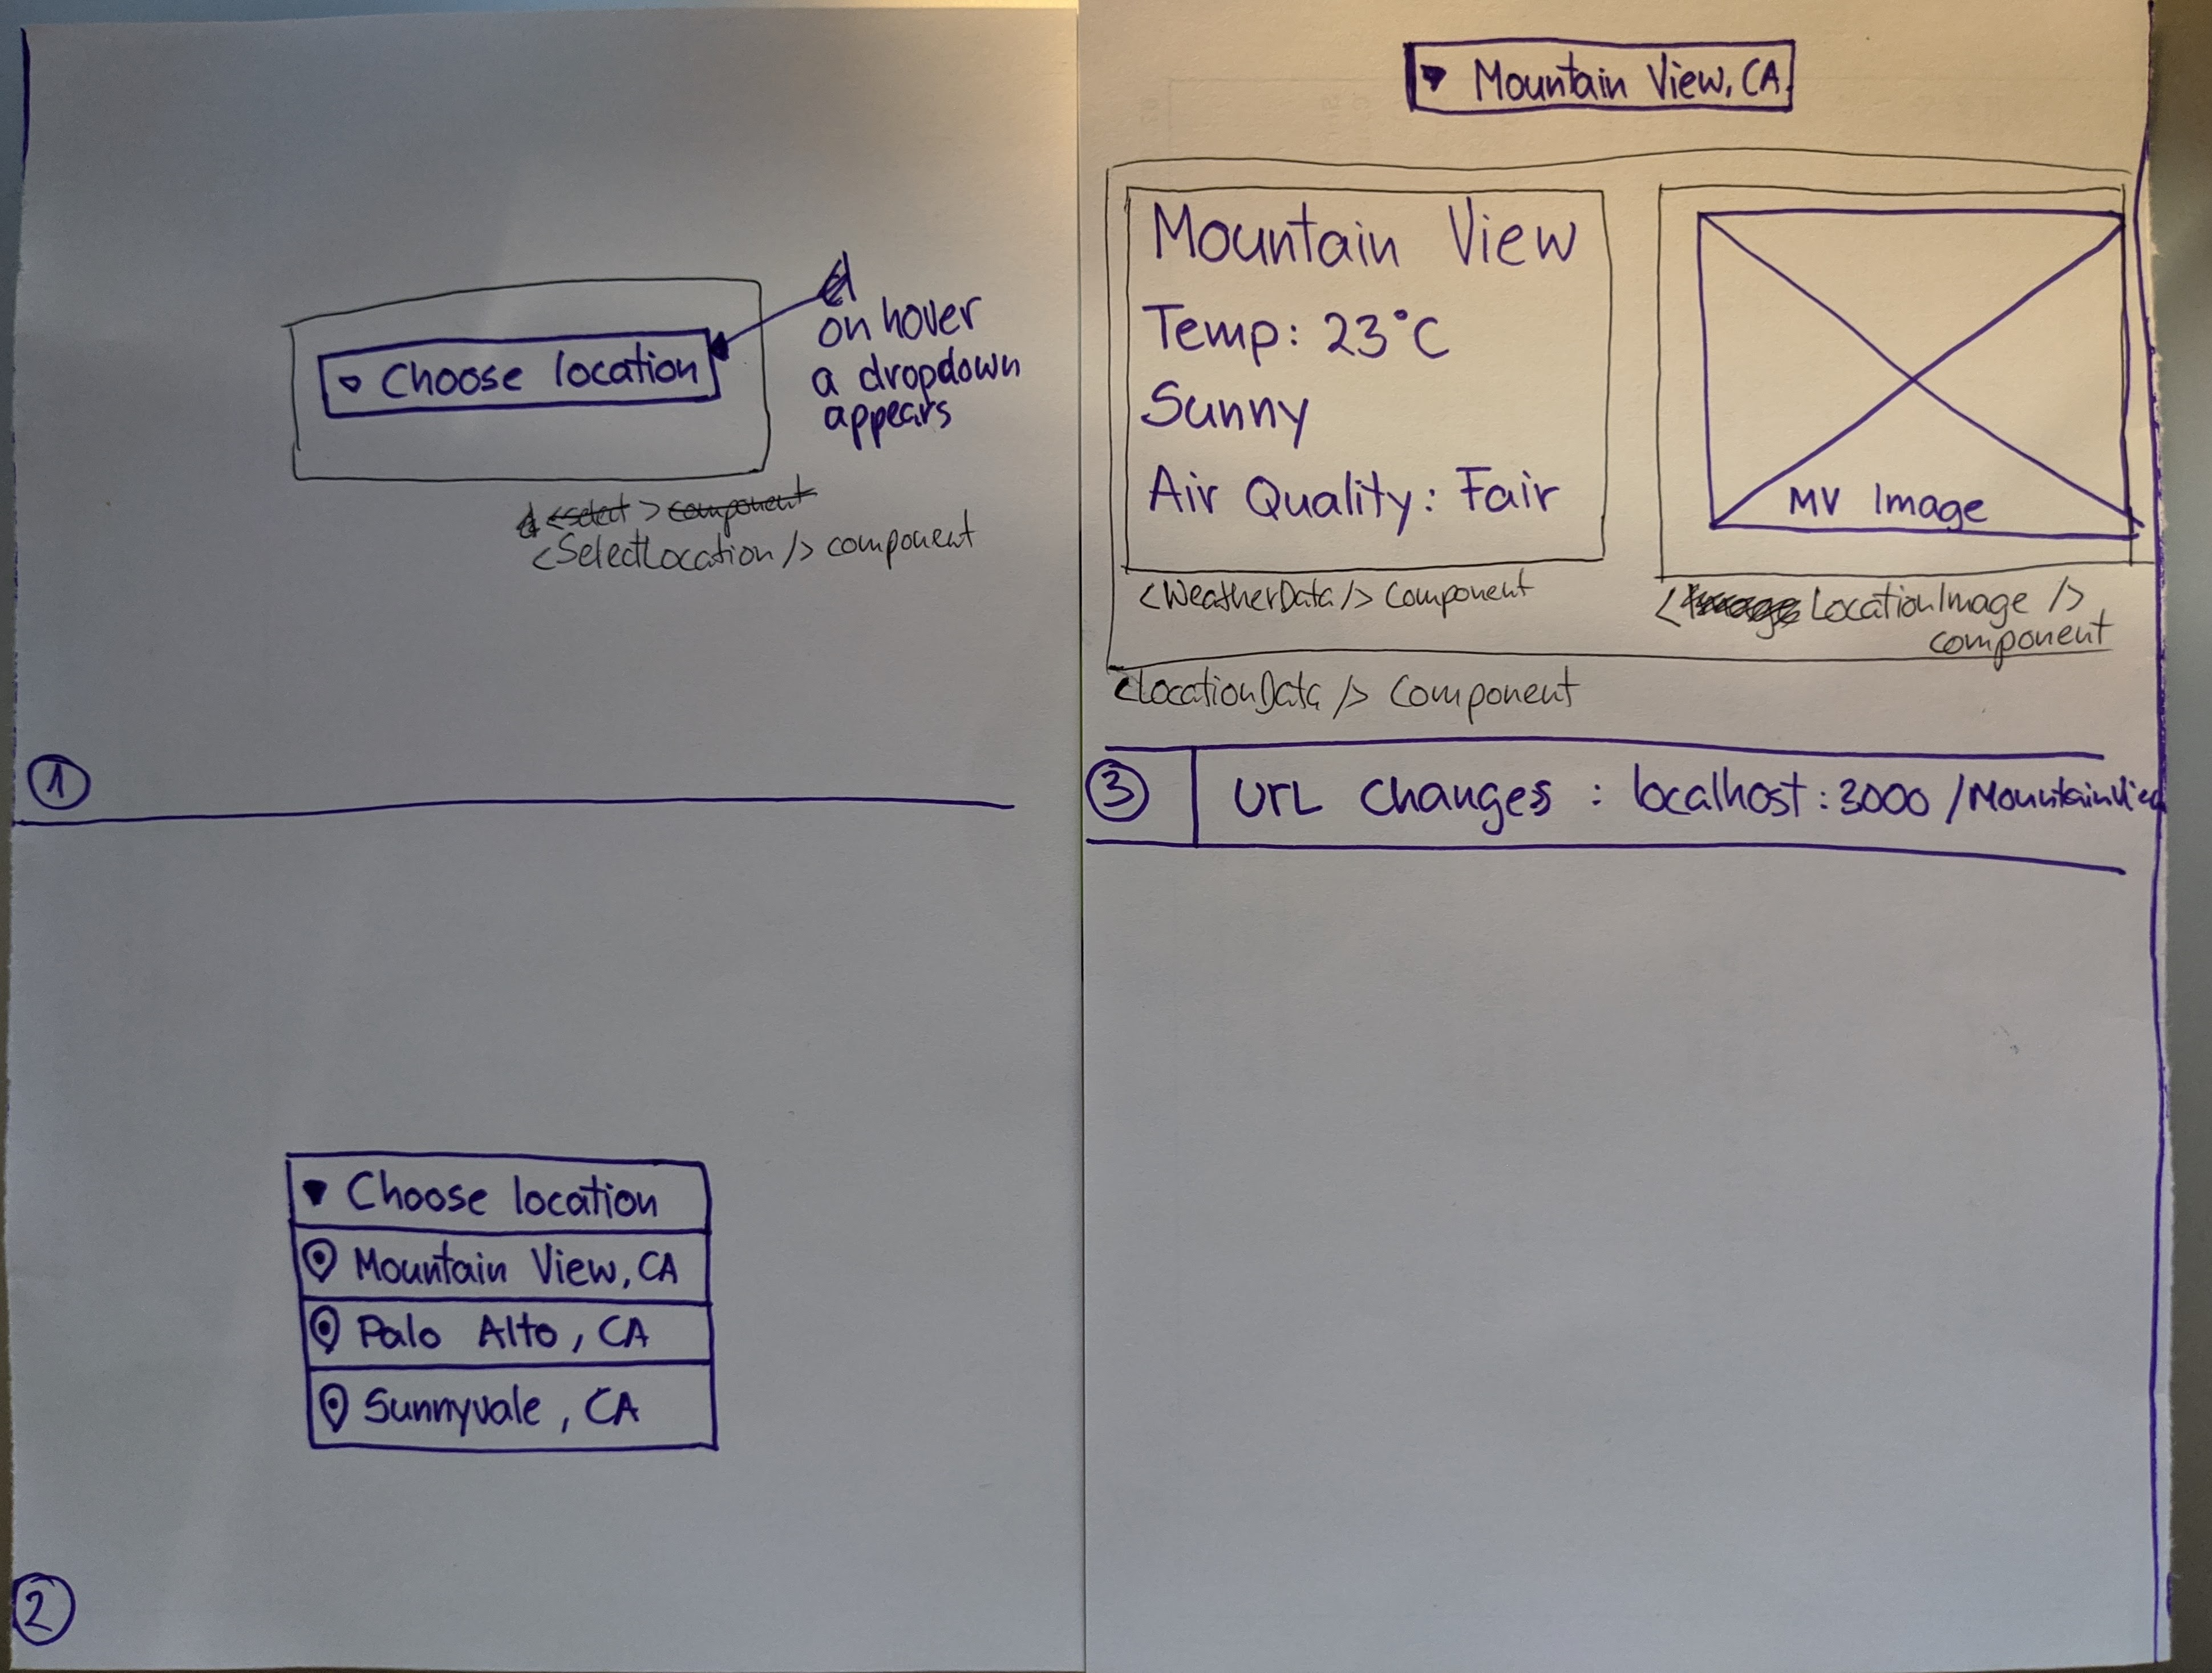 Choose location
on hover
a dropdown
appears
<select> component
<SelectLocation /> component
1
Choose location
Mountain View, CA
Palo Alto, CA
Sunnyvale, CA
2
Mountain View, CA
Mountain View
Temp: 23°C
Sunny
Air Quality: Fair
<WeatherData /> Component
MV Image
<Image LocationImage />
component
<LocationData /> Component
3
URL changes : localhost:3000/MountainView